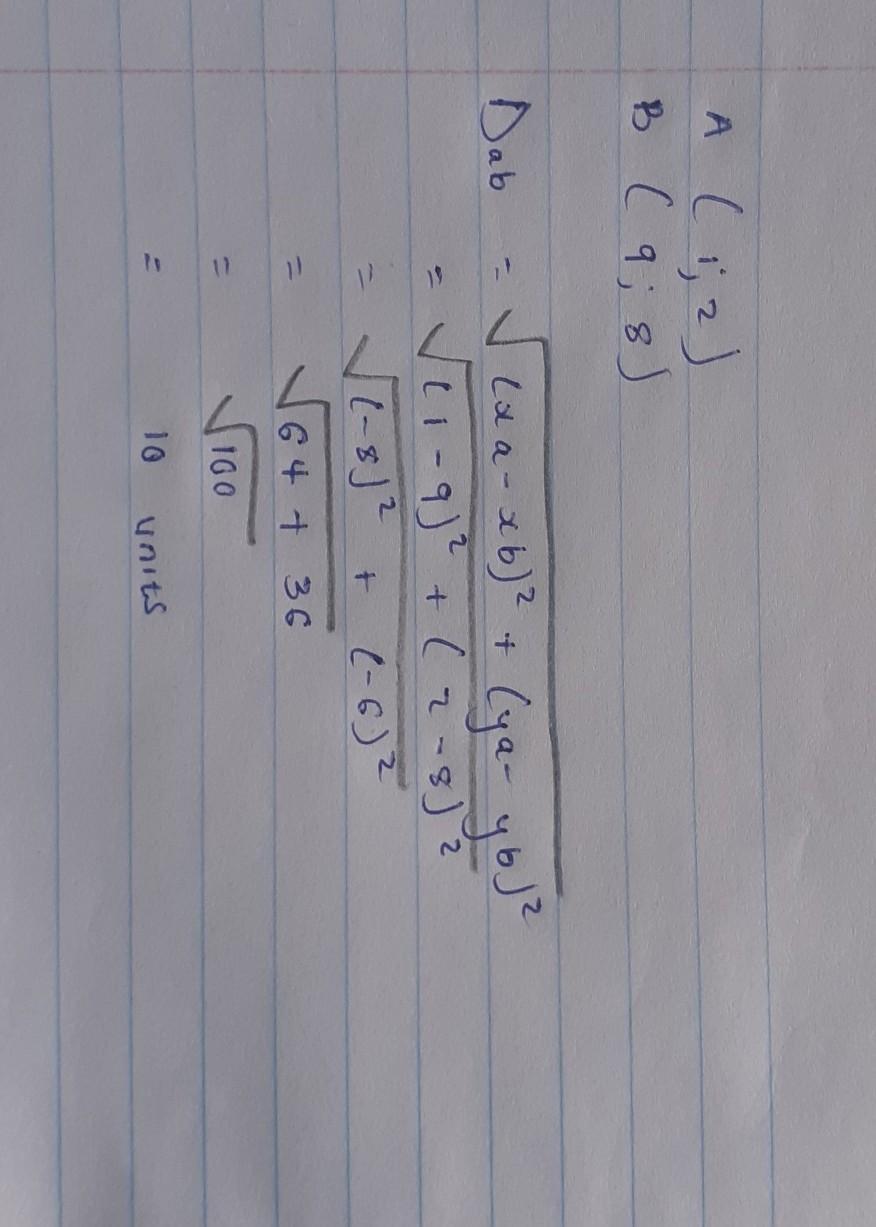 A (1; 2)
B (9; 8)
Dab = √(xa - xb)² + (ya - yb)²
= √(1 - 9)² + (2 - 8)²
= √(-8)² + (-6)²
= √64 + 36
= √100
= 10 units